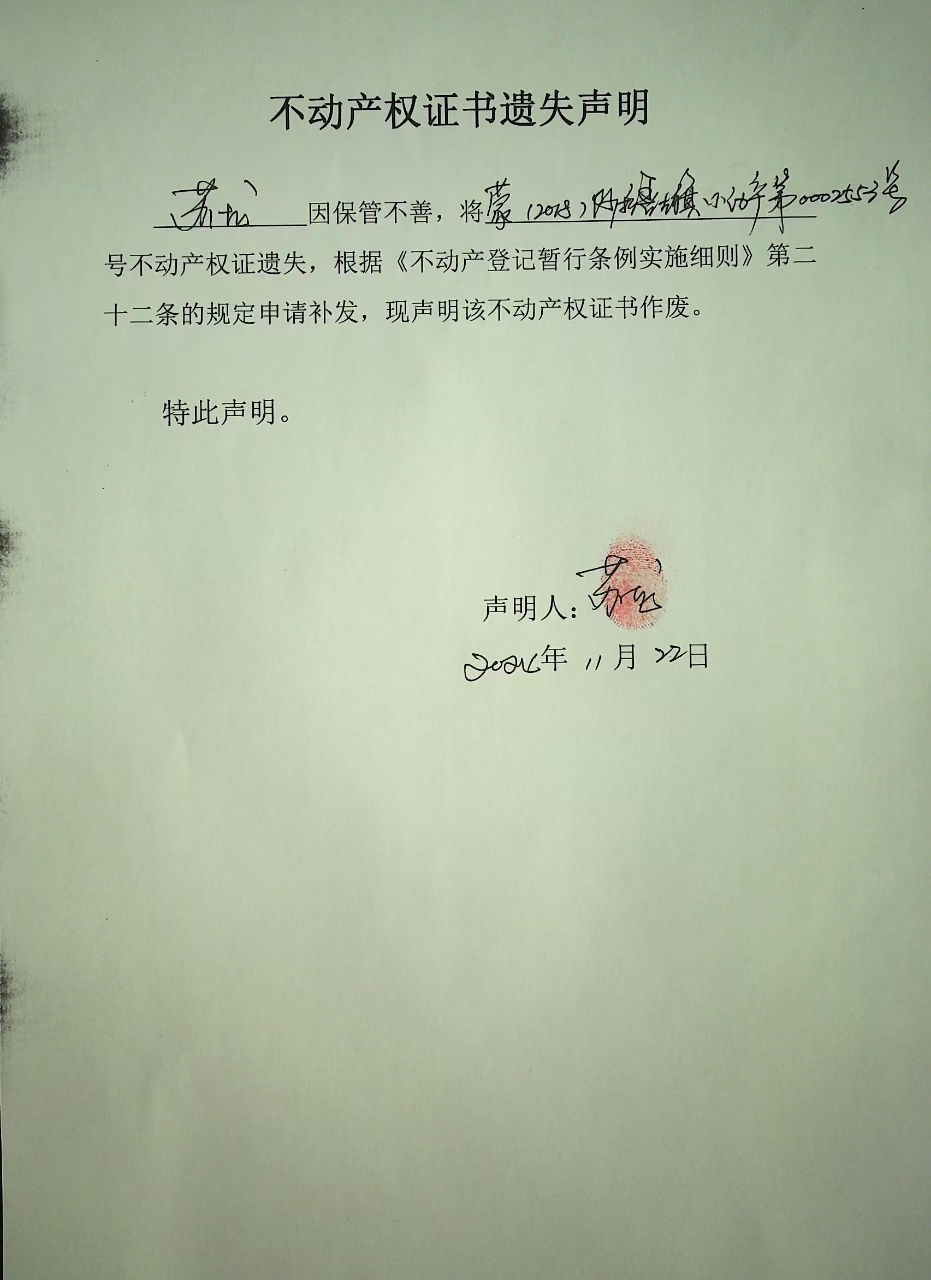 不动产权证书遗失声明
苏龙因保管不善，将蒙（2018）阿拉善左旗不动产第0002553号
号不动产权证遗失，根据《不动产登记暂行条例实施细则》第二
十二条的规定申请补发，现声明该不动产权证书作废。
特此声明。
声明人：苏龙
2024年11月22日